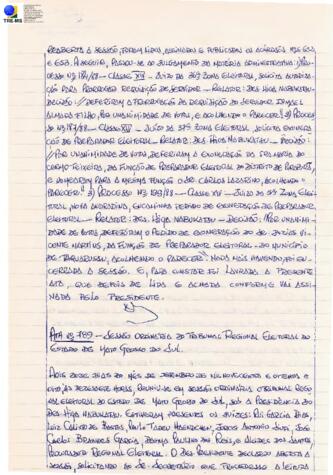 TRE-MS
REABERTA A SESSÃO, FORAM LIDOS, ASSINADOS E PUBLICADOS OS ACÓRDÃOS NºS 653
E 659. A SEGUIR, PASSOU-SE AO JULGAMENTO DA MATÉRIA ADMINISTRATIVA: 1) PRO-
CESSO Nº 184/88 - CLASSE XIV - JUIZO DA 36ª ZONA ELEITORAL, SOLICITA AUTORIZA-
ÇÃO PARA PRORROGAR REQUISIÇÃO DE SERVIDOR - RELATOR: DES. HIGA NABUKATSU -
DECISÃO: "DEFERIRAM A PRORROGAÇÃO DA REQUISIÇÃO DO SERVIDOR
FILHO, POR UNANIMIDADE DE VOTOS, ACOLHENDO O PARECER". 2) PROCES-
SO Nº 187/88 - CLASSE XIV - JUIZO DA 37ª ZONA ELEITORAL, SOLICITA EXONERAÇÃO
DE PREPARADOR ELEITORAL - RELATOR: DES. HIGA NABUKATSU - DECISÃO:
"POR UNANIMIDADE DE VOTOS, DEFERIRAM A EXONERAÇÃO DE
DA FUNÇÃO DE PREPARADOR ELEITORAL DO DISTRITO DE
E NOMEARAM PARA A MESMA FUNÇÃO O SR. CARLOS LAZARINO, ACOLHENDO O
PARECER". 3) PROCESSO Nº 193/88 - CLASSE XIV - JUIZO DA 5ª ZONA ELEI-
TORAL, NOVA ANDRADINA, ENCAMINHA PEDIDO DE EXONERAÇÃO DE PREPARADOR
ELEITORAL - RELATOR: DES. HIGA NABUKATSU - DECISÃO: "POR UNANIMIDA-
DE DE VOTOS, DEFERIRAM O PEDIDO DE EXONERAÇÃO DO SR. VI-
CENTE MARTINS, DA FUNÇÃO DE PREPARADOR ELEITORAL DO MUNICÍPIO
DE TAQUARUSSU, ACOLHENDO O PARECER". NADA MAIS HAVENDO, FOI EN-
CERRADA A SESSÃO. E, PARA CONSTAR FOI LAVRADA A PRESENTE
ATA, QUE DEPOIS DE LIDA E ACHADA CONFORME VAI ASSI-
NADA PELO PRESIDENTE.
ATA Nº 789 - SESSÃO ORDINÁRIA DO TRIBUNAL REGIONAL ELEITORAL DO
ESTADO DE MATO GROSSO DO SUL.
AOS DOZE DIAS DO MÊS DE DEZEMBRO DE MIL NOVECENTOS E OITENTA E
OITO, ÀS DEZESSETE HORAS, REUNIU-SE EM SESSÃO ORDINÁRIA O TRIBUNAL REGIO-
NAL ELEITORAL DO ESTADO DE MATO GROSSO DO SUL, SOB A PRESIDÊNCIA DO
DES. HIGA NABUKATSU. ESTIVERAM PRESENTES OS JUIZES: RUI GARCIA DIAS,
LUIZ CARLOS DE SANTINI, PAULO TADEU HAENDCHEN, JORGE ANTONIO SIUFI, JOSÉ
CARLOS BRANDES GARCIA, JOENYR PAULINO DOS REIS, O ALCIDES DOS SANTOS,
PROCURADOR REGIONAL ELEITORAL. O DES. PRESIDENTE DECLAROU ABERTA A
SESSÃO, SOLICITANDO AO SR. SECRETÁRIO QUE PROCEDESSE À LEITURA